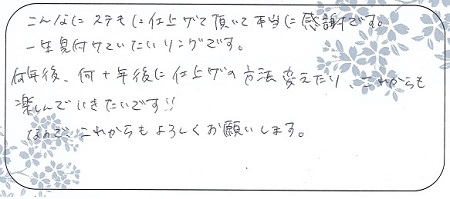 こんなにステキに仕上げて頂いて本当に感謝です。
一生見付けていたいリングです。
何年後、何十年後に仕上げの方法変えたり、これからも
楽しんでいきたいです!!
なので、これからもよろしくお願いします。